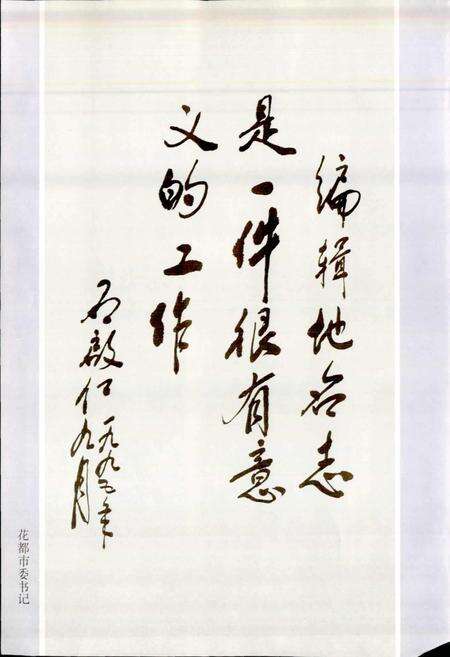 编辑地名志
是一件很有意
义的工作
石啟仁一九九五年
九月
花都市委书记